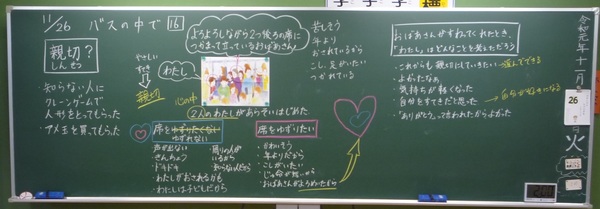 11/26 バスの中で 16
親切?
しんせつ
・知らない人に
クレーンゲームで
人形をとってもらった
・アメ玉を買ってもらった
やさしい
親切
よろよろしながら2つ後ろの席に
つかまって立っているおばあさん
わたし
心の中
2人のわたしがあらそいはじめた
苦しそう
年より
おされているから
こし、足がいたい
つかれている
席をゆずりたくない
ゆずれない
声が出ない
きんちょう
・ドキドキ
・わたしがおされるかも
・わたしは子どもだから
・周りの人が
いるから
・知らない人だから
席をゆずりたい
・かわいそう
・年よりだから
・こしがいたい
・おばあさんがよろめいたから
・これからも親切にしていきたい
・よかったなぁ
気持ちが軽くなった
・自分をすてきだと思った
・"ありがとう"って言われたからよかった
令和元年十一月
26
火